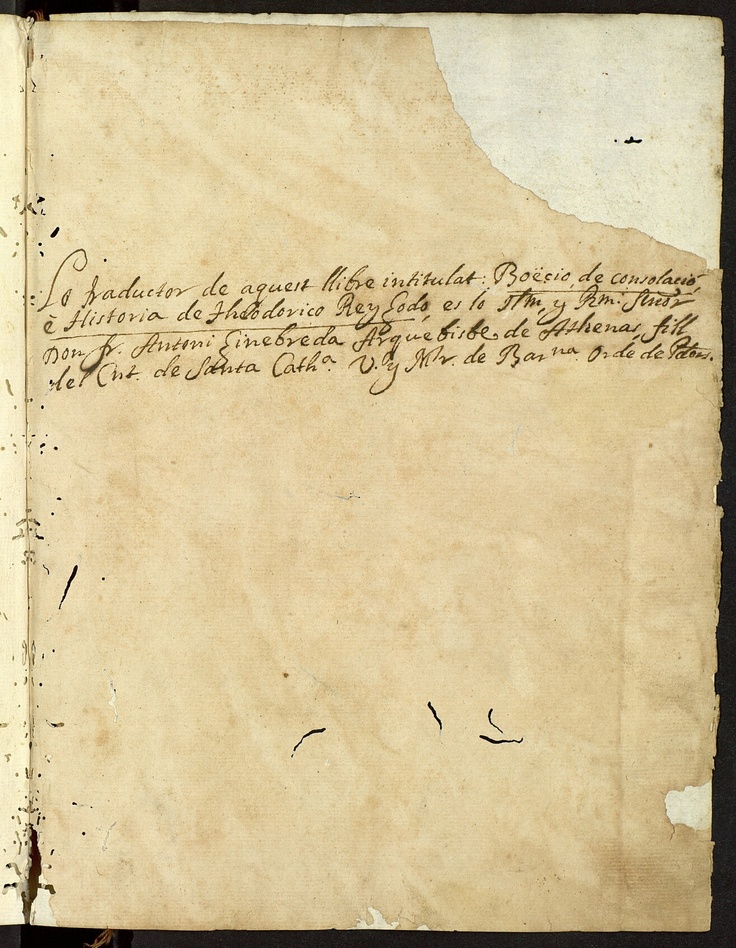 Lo traductor de aquest llibre intitulat: Boëcio, de consolació,
è Historia de Theodorico Rey Godo, es lo Illm. y Rm. Snõr
Don Fr. Antoni Ginebreda Arquebisbe de Athenas, fill
del Cnt. de Santa Cathª. V. y Mr. de Barna. Orde de